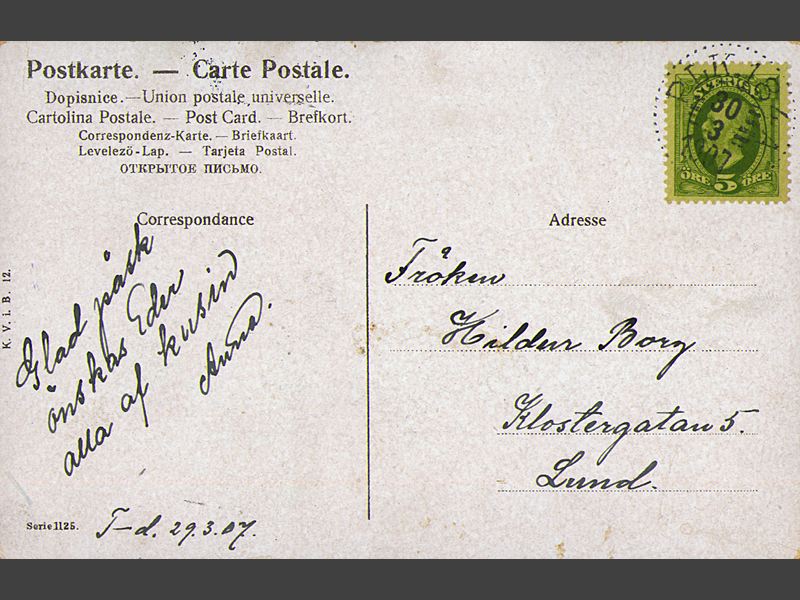 Postkarte. — Carte Postale.
Dopisnice. — Union postale universelle.
Cartolina Postale. — Post Card. — Brefkort.
Correspondenz-Karte. — Briefkaart.
Levelező-Lap. — Tarjeta Postal.
ОТКРЫТОЕ ПИСЬМО.
SVERIGE
30
3
07
ÖRE 5 ÖRE
Correspondance
Glad påsk
önskas Eder
alla af kusin
Anna.
T-d. 29.3.07.
Adresse
Fröken
Hildur Borg
Klostergatan 5.
Lund.
K. V. i. B. 12.
Serie 1125.